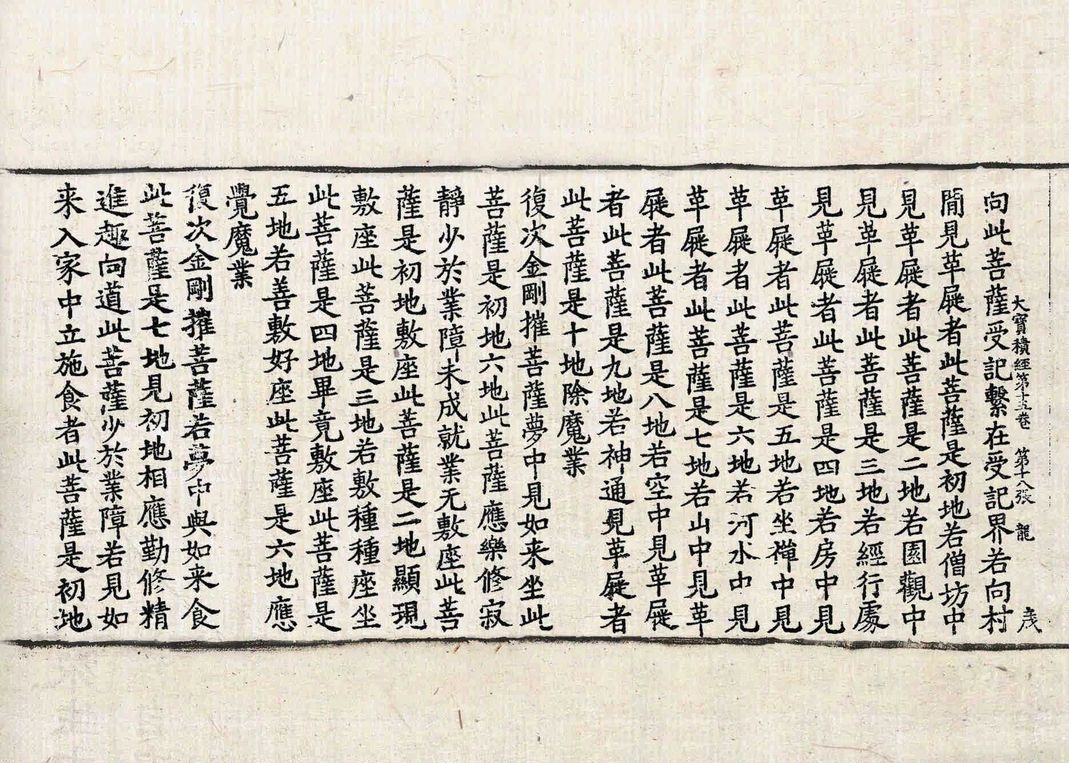 大寶積經第十五卷 第十八張 龍 戌
向此菩薩受記繫在受記界若向村
閒見草屣者此菩薩是初地若僧坊中
見草屣者此菩薩是二地若園觀中
見草屣者此菩薩是三地若經行處
見草屣者此菩薩是四地若房中見
草屣者此菩薩是五地若坐禪中見
草屣者此菩薩是六地若河水中見
草屣者此菩薩是七地若山中見草
屣者此菩薩是八地若空中見草屣
者此菩薩是九地若神通見草屣者
此菩薩是十地除魔業
復次金剛摧菩薩夢中見如来坐此
菩薩是初地六地此菩薩應樂修寂
靜少於業障未成就業无敷座此菩
薩是初地敷座此菩薩是二地顯現
敷座此菩薩是三地若敷種種座坐
此菩薩是四地畢竟敷座此菩薩是
五地若善敷好座此菩薩是六地應
覺魔業
復次金剛摧菩薩若夢中與如来食
此菩薩是七地見初地相應勤修精
進趣向道此菩薩少於業障若見如
来入家中立施食者此菩薩是初地